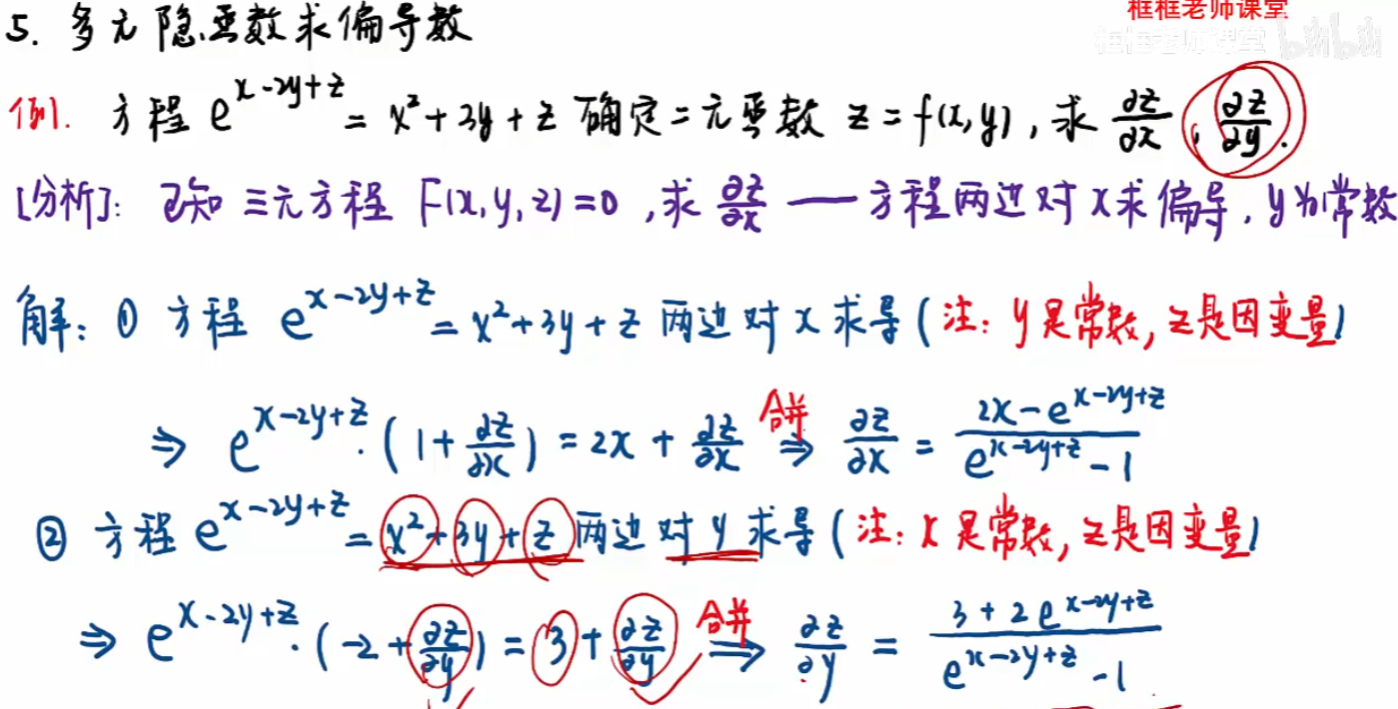 框框老师课堂
框框老师课堂 bilibili
5. 多元隐函数求偏导数
例1. 方程 e^{x-2y+z} = x² + 3y + z 确定二元函数 z = f(x,y), 求 ∂z/∂x, ∂z/∂y.
[分析]: 已知三元方程 F(x,y,z)=0, 求 ∂z/∂x — 方程两边对x求偏导, y为常数
解: ① 方程 e^{x-2y+z} = x²+3y+z 两边对x求导 (注: y是常数, z是因变量)
⇒ e^{x-2y+z}·(1+∂z/∂x) = 2x + ∂z/∂x 合并⇒ ∂z/∂x = (2x-e^{x-2y+z})/(e^{x-2y+z}-1)
② 方程 e^{x-2y+z} = x²+3y+z 两边对y求导 (注: x是常数, z是因变量)
⇒ e^{x-2y+z}·(-2+∂z/∂y) = 3+∂z/∂y 合并⇒ ∂z/∂y = (3+2e^{x-2y+z})/(e^{x-2y+z}-1)